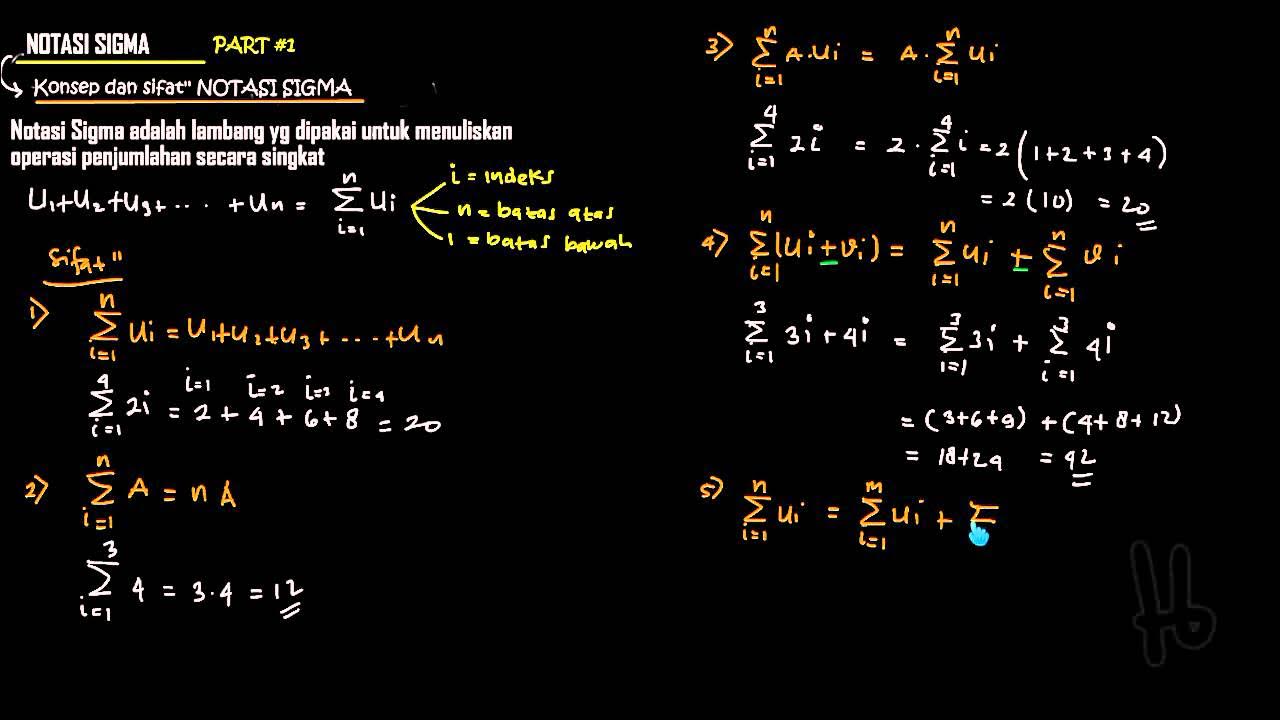 NOTASI SIGMA PART #1
Konsep dan sifat" NOTASI SIGMA
Notasi Sigma adalah lambang yg dipakai untuk menuliskan
operasi penjumlahan secara singkat
U1+U2+U3+ .... +Un = n Σ i=1 Ui
i = indeks
n = batas atas
1 = batas bawah
Sifat"
1) n Σ i=1 Ui = U1+U2+U3+ ... +Un
i=1 i=2 i=3 i=4
4 Σ i=1 2i = 2 + 4 + 6 + 8 = 20
2) n Σ i=1 A = n A
3 Σ i=1 4 = 3.4 = 12
3) n Σ i=1 A.Ui = A. n Σ i=1 Ui
4 Σ i=1 2i = 2. 4 Σ i=1 i = 2(1+2+3+4)
= 2(10) = 20
4) n Σ i=1 (Ui ± Vi) = n Σ i=1 Ui ± n Σ i=1 Vi
3 Σ i=1 3i + 4i = 3 Σ i=1 3i + 3 Σ i=1 4i
= (3+6+9) + (4+8+12)
= 18+24 = 42
5) n Σ i=1 Ui = m Σ i=1 Ui + Σ